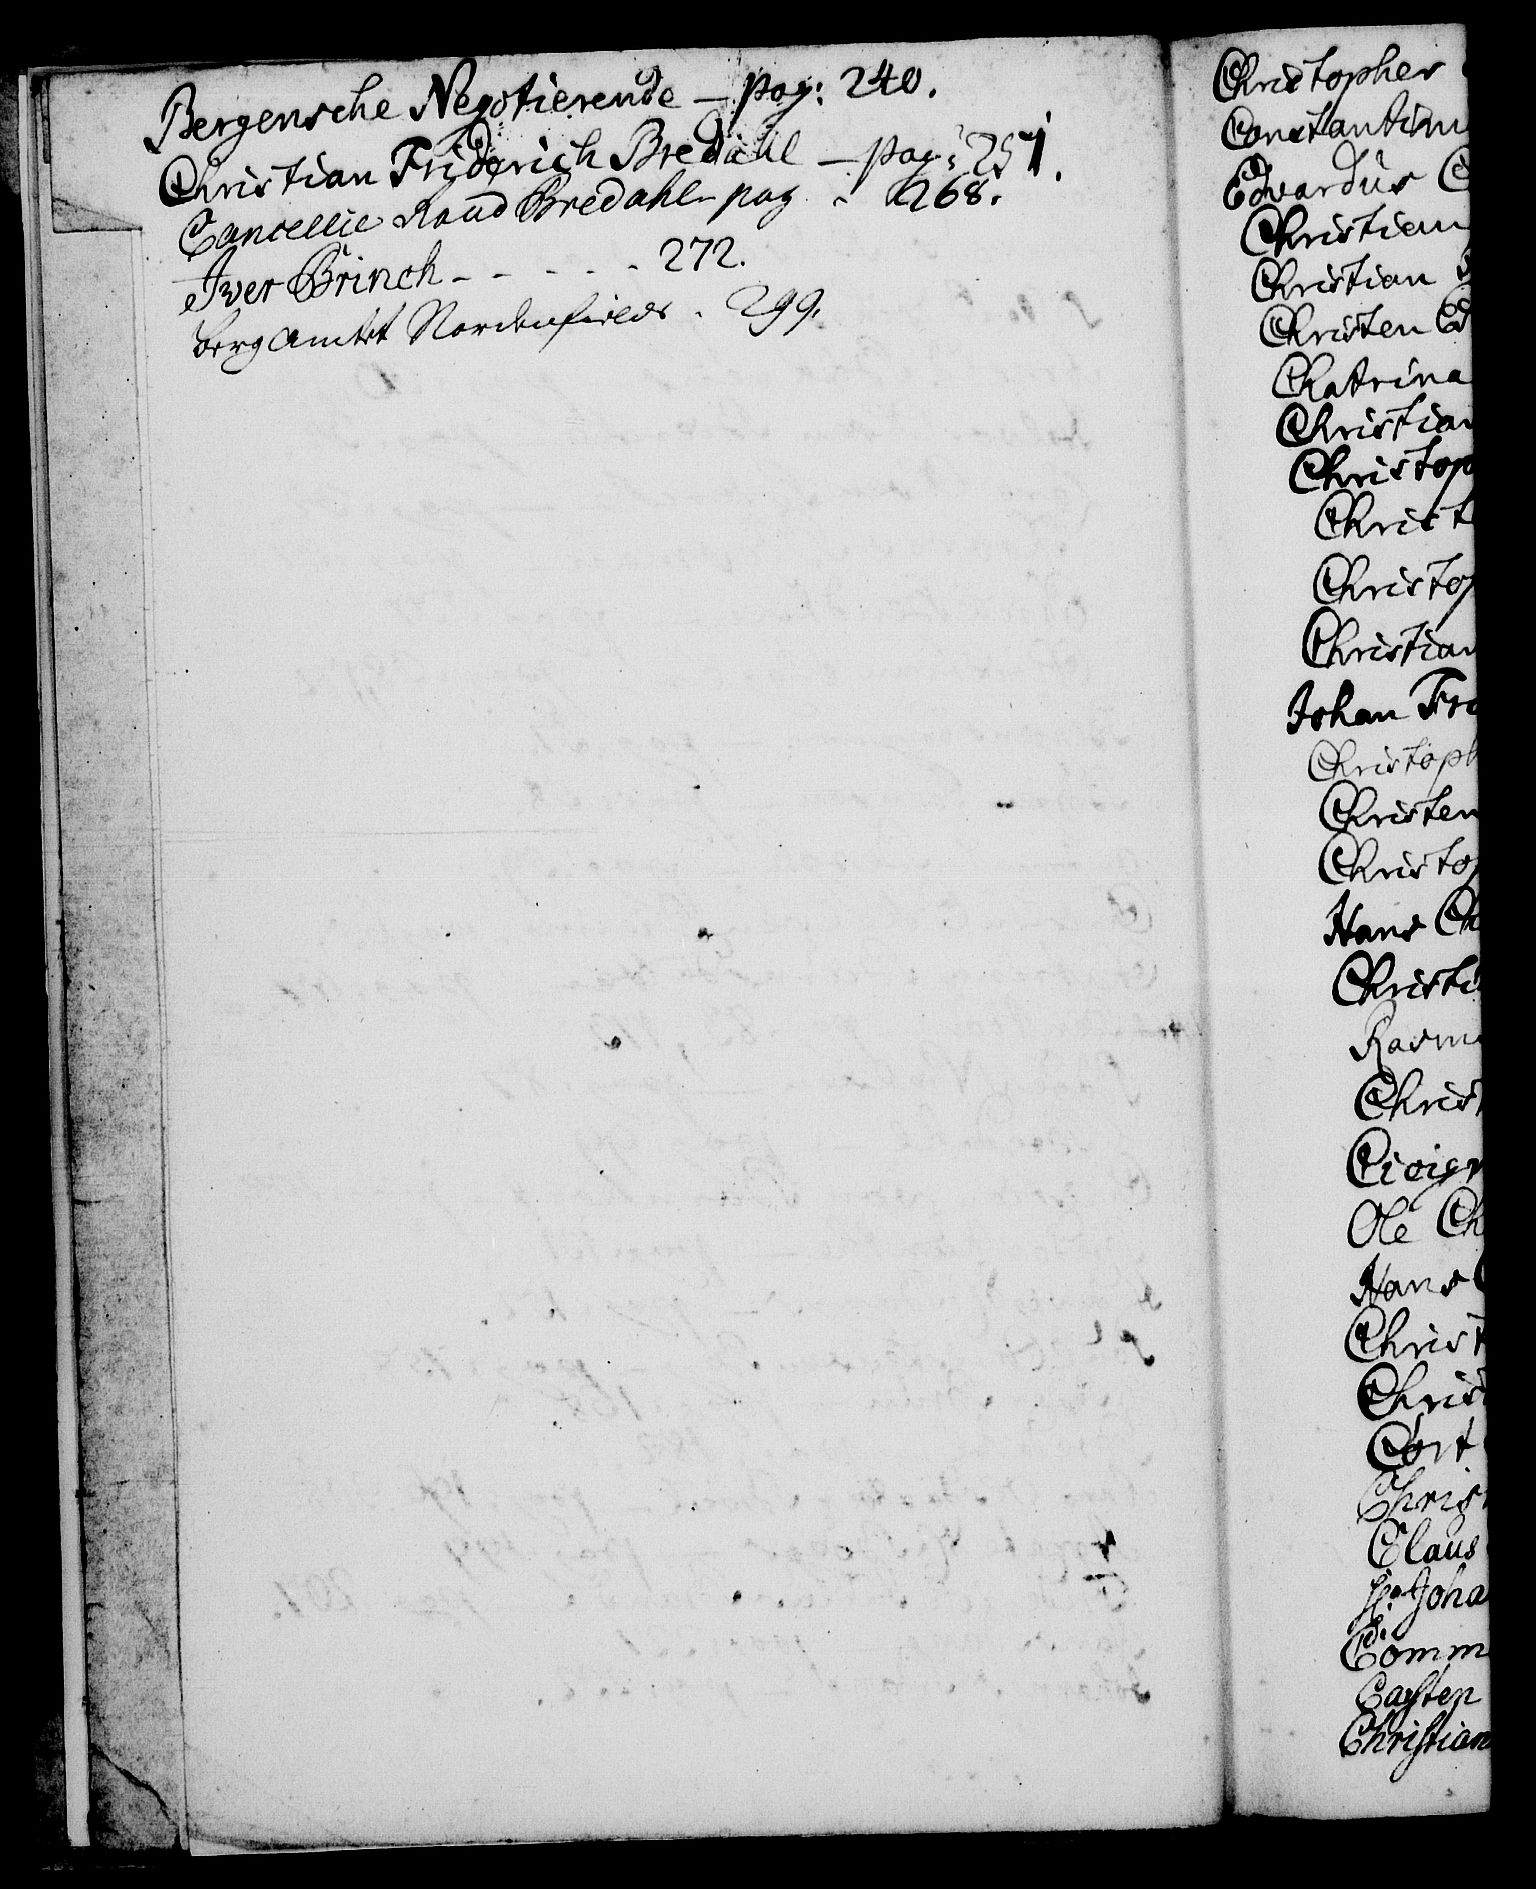 Bergensche Negotierende — pag: 240.
Christian Friderich Bredahl — pag: 251.
Cancellie Raad Bredahl pag. 268.
Iver Brinch - - - - - - 272.
Berg Amtet Nordenfields. 299.
Christopher
Constantin
Edvardus C
Christian
Christian
Christen
Chatrina
Christian
Christop
Christ
Christop
Christian
Johan Fr
Christoph
Christen
Christop
Hans Ch
Christi
Rasm
Christ
Ole Ch
Hans
Christ
Christ
Cort
Chris
Claus
Joha
Comm
Casten
Christian